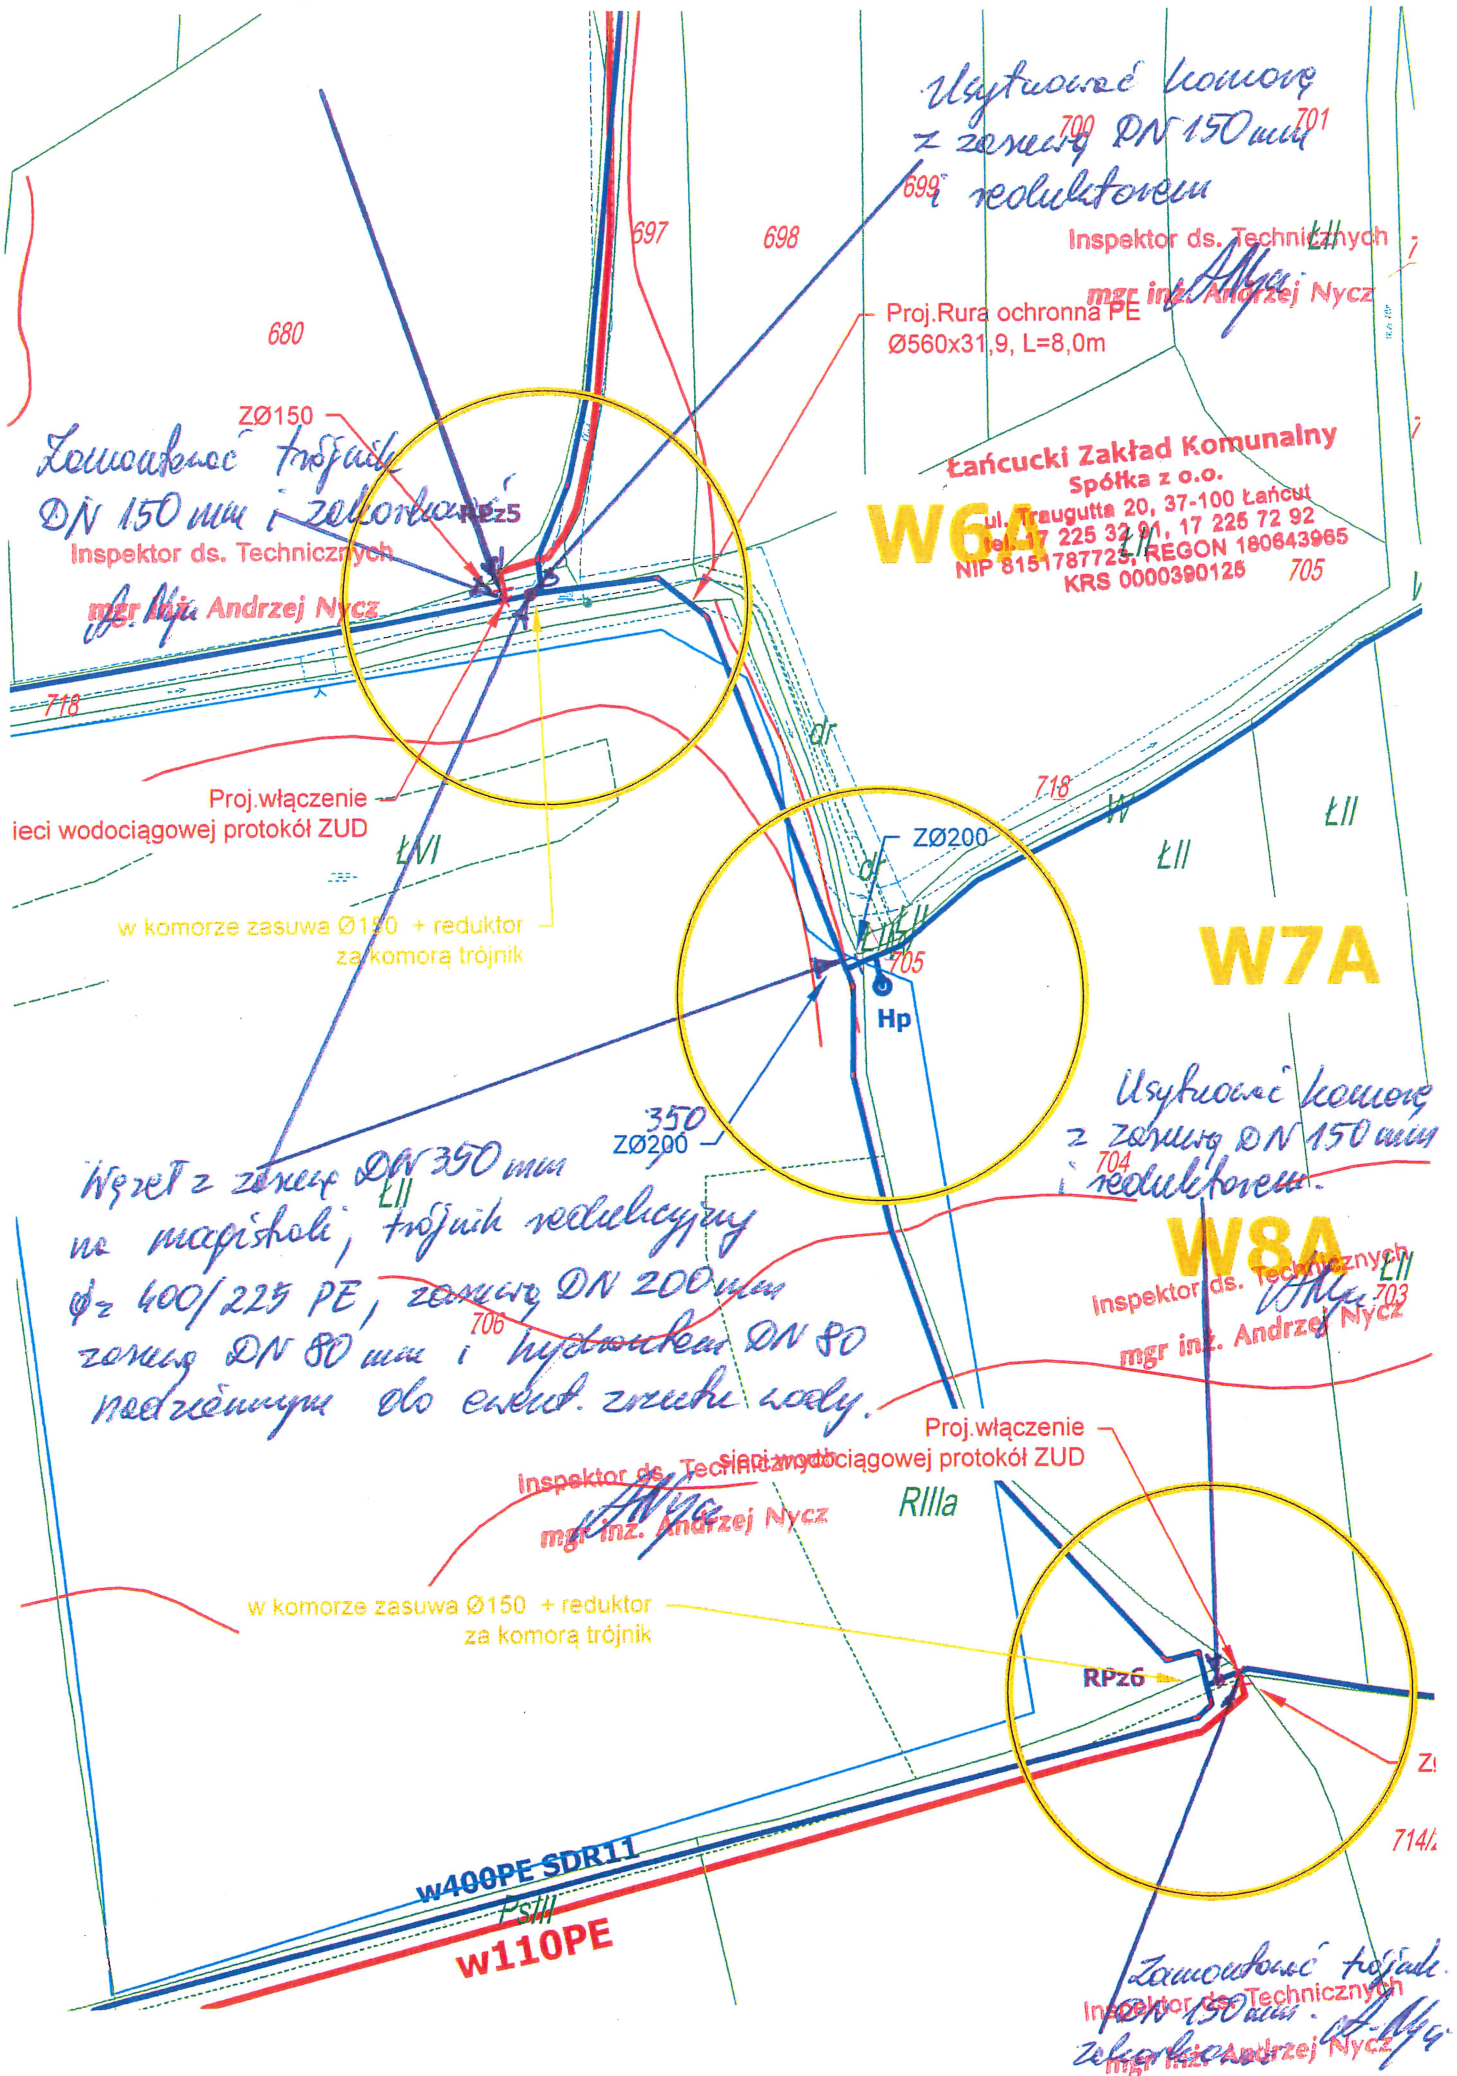 Usytuować komorę
z zasuwą DN 150 mm
i reduktorem
700
701
699
697
698
ŁII
7
Inspektor ds. Technicznych
mgr inż. Andrzej Nycz
680
Proj.Rura ochronna PE
Ø560x31,9, L=8,0m
ZØ150
Zamontować trójnik
DN 150 mm i zakorkować
RPz5
Inspektor ds. Technicznych
mgr inż. Andrzej Nycz
Łańcucki Zakład Komunalny
Spółka z o.o.
ul. Traugutta 20, 37-100 Łańcut
tel. 17 225 32 91, 17 225 72 92
NIP 8151787723, REGON 180643965
KRS 0000390126
W6A
ŁII
705
718
dr
Proj.włączenie
ieci wodociągowej protokół ZUD
ŁVI
718
W
ŁII
ŁII
ZØ200
dr
w komorze zasuwa Ø150 + reduktor
za komorą trójnik
705
W7A
Hp
350
ZØ200
Usytuować komorę
z zasuwą DN 150 mm
i reduktorem.
704
Węzeł z zasuwą DN 350 mm
na magistrali, trójnik redukcyjny
ϕ= 400/225 PE, zasuwą DN 200 mm
zasuwą DN 80 mm i hydrantem DN 80
nadziemnym do ewent. zrzutu wody.
ŁII
706
W8A
Inspektor ds. Technicznych
mgr inż. Andrzej Nycz
ŁII
703
Proj.włączenie
sieci wodociągowej protokół ZUD
Inspektor ds. Technicznych
mgr inż. Andrzej Nycz
RIIIa
w komorze zasuwa Ø150 + reduktor
za komorą trójnik
RPz6
714/2
w400PE SDR11
PsIII
w110PE
Zamontować trójnik
DN 150 mm.
zakorkować
Inspektor ds. Technicznych
mgr inż. Andrzej Nycz